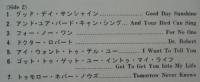 (Side 2)
1. グッド・デイ・サンシャイン……Good Day Sunshine
2. アンド・ユア・バード・キャン・シング……And Your Bird Can Sing
3. フォー・ノー・ワン……For No One
4. ドクター・ロバート……Dr. Robert
5. アイ・ウォント・トゥ・テル・ユー……I Want To Tell You
6. ゴット・トゥ・ゲット・ユー・イントゥ・マイ・ライフ
Got To Get You Into My Life
7. トゥモロー・ネバー・ノウズ……Tomorrow Never Knows